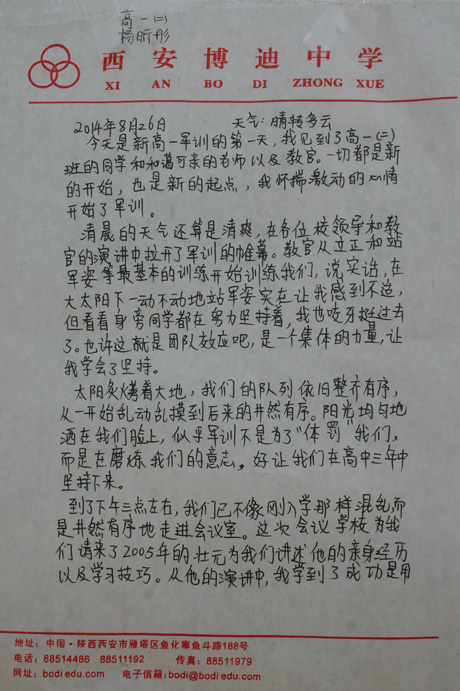 高一(二)
杨昕彤
西安博迪中学
XI AN BO DI ZHONG XUE
2014年8月26日 天气:晴转多云
今天是新高一军训的第一天,我见到了高一(二)
班的同学和和谐可亲的老师以及教官。一切都是新
的开始,也是新的起点,我怀揣激动的心情
开始了军训。
清晨的天气还算是清爽,在各位校领导和教
官的演讲中拉开了军训的帷幕。教官从立正和站
军姿等最基本的训练开始训练我们,说实话,在
大太阳下一动不动地站军姿实在让我感到不适,
但看看身旁同学都在努力坚持着,我也咬牙挺过去
了。也许这就是团队效应吧,是一个集体的力量,让
我学会了坚持。
太阳炙烤着大地,我们的队列依旧整齐有序,
从一开始乱动乱摸到后来的井然有序。阳光均匀地
洒在我们脸上,似乎军训不是为了“体罚”我们,
而是在磨炼我们的意志。好让我们在高中三年中
坚持下来。
到了下午三点左右,我们已不像刚入学那样混乱,而
是井然有序地走进会议室。这次会议学校为我
们请来了2005年的状元为我们讲述他的亲身经历
以及学习技巧。从他的演讲中,我学到了成功是用
地址:中国·陕西西安市雁塔区鱼化寨鱼斗路188号
电话:88514486 88511192 传真:88511979
网址:bodiedu.com 电子信箱:bodi@bodiedu.com